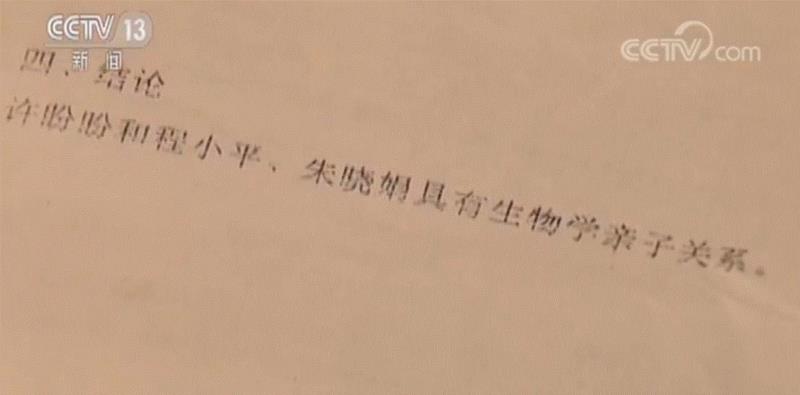 CCTV 13
新闻
CCTV.com
四、结论
许盼盼和程小平、朱晓娟具有生物学亲子关系。